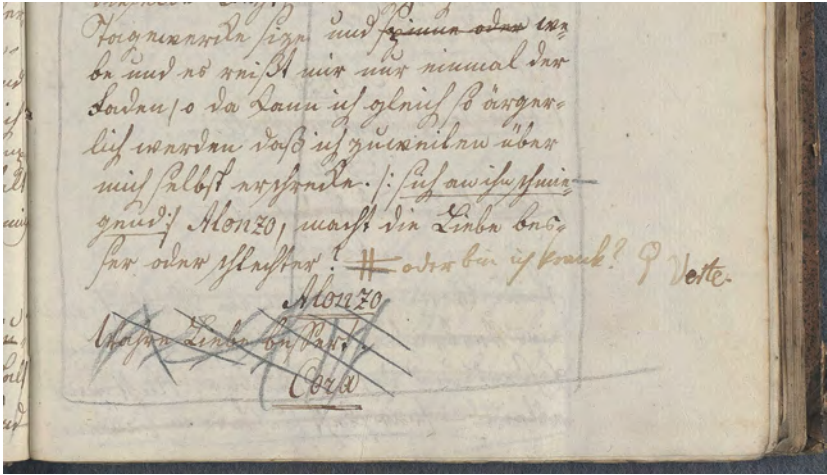 Tagewerke size und spinne oder we-
be und es reißt mir nur einmal der
Faden, o da kann ich gleich so ärger-
lich werden daß ich zuweilen über
mich selbst erschrecke. /: sich an ihn schmie-
gend :/ Alonzo, macht die Liebe bes-
ser oder schlechter? # oder bin ich krank? Verte.
Alonzo
Wahre Liebe bessert.
Cora